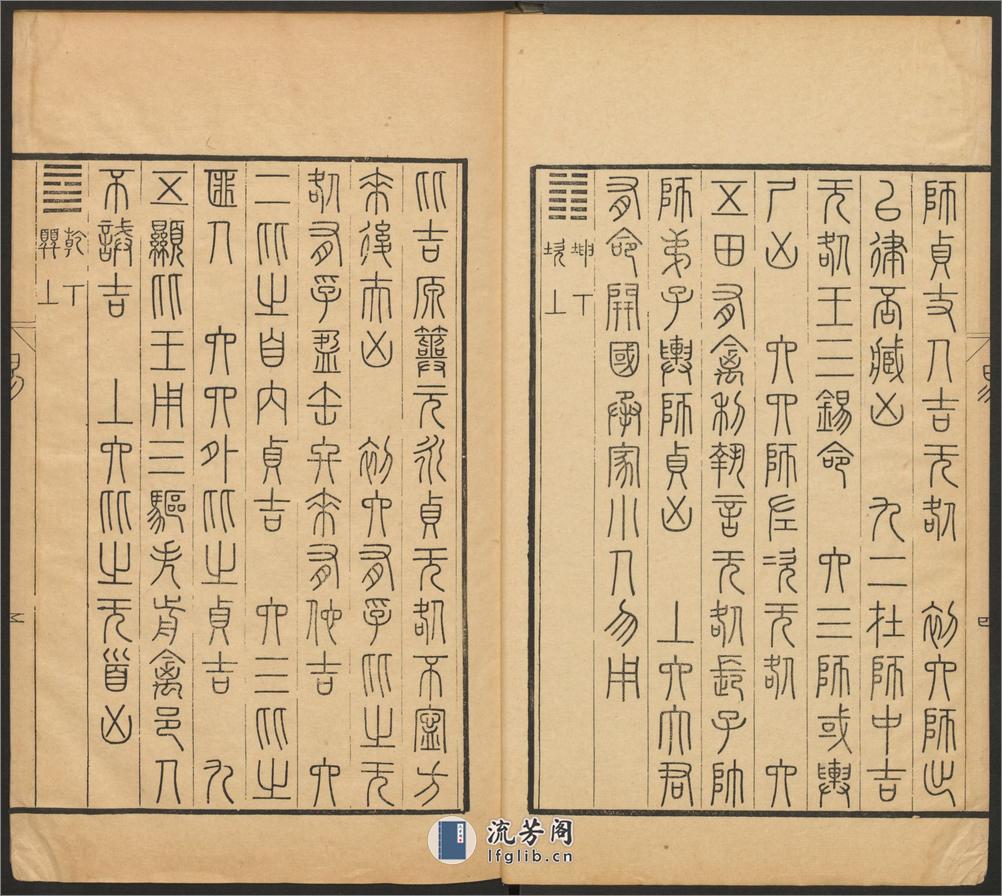 師貞丈人吉无咎　初六師出
以律否臧凶　九二在師中吉
无咎王三錫命　六三師或輿
尸凶　六四師左次无咎　六
五田有禽利執言无咎長子帥
師弟子輿師貞凶　上六大君
有命開國承家小人勿用
坤下
坎上
比吉原筮元永貞无咎不寧方
來後夫凶　初六有孚比之无
咎有孚盈缶終來有他吉　六
二比之自內貞吉　六三比之
匪人　六四外比之貞吉　九
五顯比王用三驅失前禽邑人
不誡吉　上六比之无首凶
乾下
巽上
易
四
易
五
流芳阁
lfglib.cn